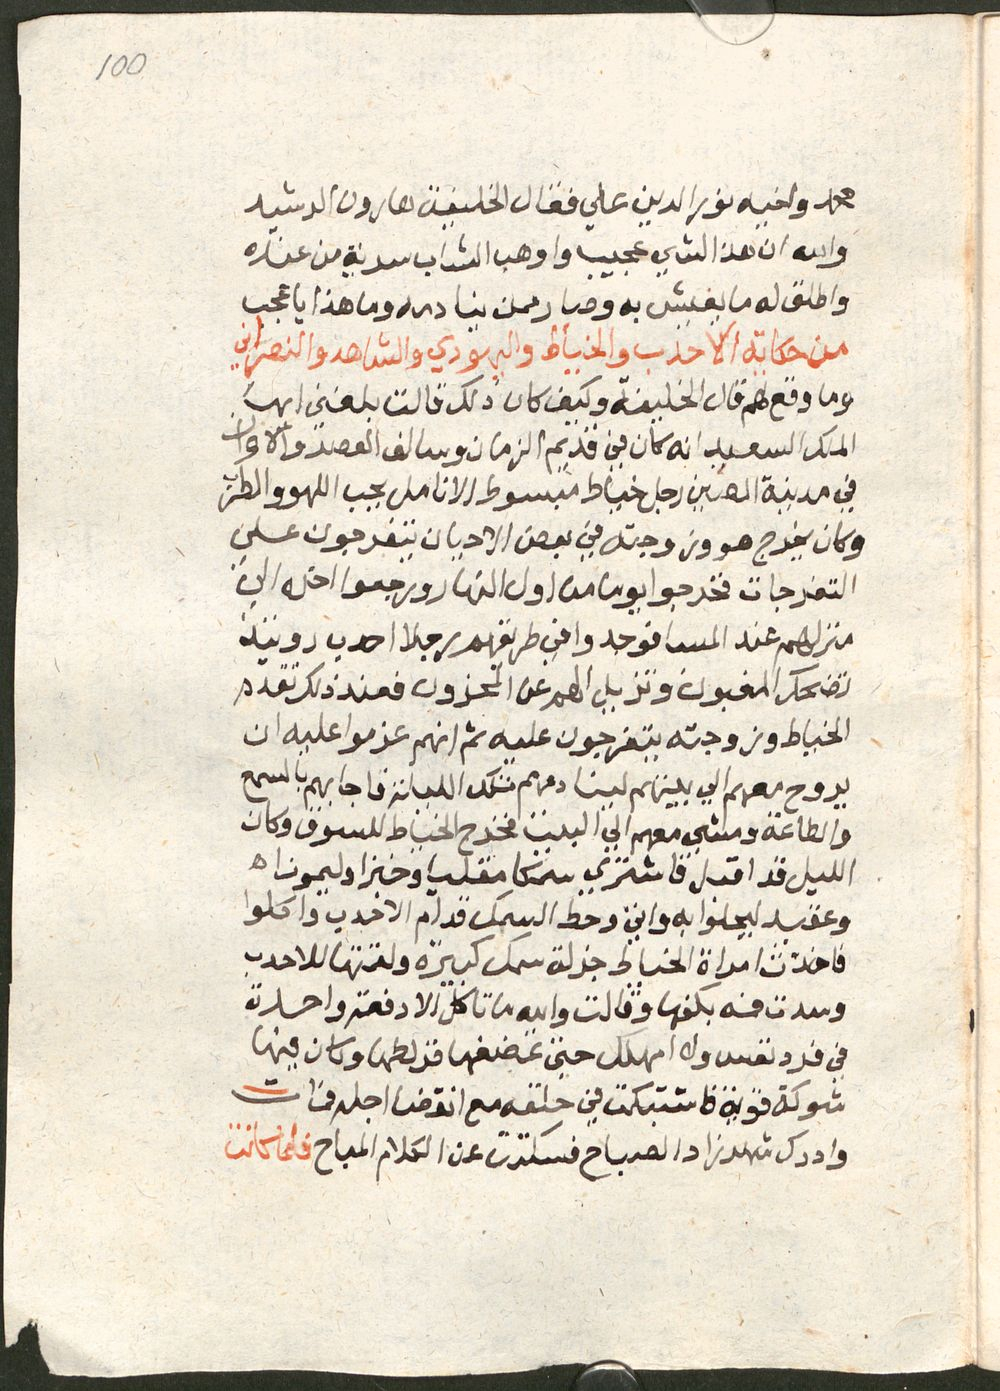 100
محمد واخيه نور الدين علي فقال الخليفة هارون الرشيد
والله ان هذا الشي عجيب واوهب الشاب سرية من عنده
واطلق له ما يعيش به وصار ممن ينادمه وما هذا باعجب
من حكاية الاحدب والخياط واليهودي والشاهد والنصراني
وما وقع لهم قال الخليفة وكيف كان ذلك قالت بلغني ايها
الملك السعيد انه كان في قديم الزمان وسالف العصر والاوان
في مدينة الصين رجل خياط مبسوط الانامل يحب اللهو والطرب
وكان يخرج هو وزوجته في بعض الاحيان يتفرجون على
التفرجات فخرجوا يوما من اول النهار ورجعوا اخره الى
منزلهم عند المسا فوجدوا في طريقهم رجلا احدب رويته
تضحك المغبون وتزيل الهم عن المحزون فعند ذلك تقدم
الخياط وزوجته يتفرجون عليه ثم انهم عزموا عليه ان
يروح معهم الي بيتهم لينادمهم تلك الليلة فاجابهم بالسمع
والطاعة ومشي معهم الي البيت فخرج الخياط للسوق وكان
الليل قد اقبل فاشتري سمكا مقليا وخبزا وليمونا
وعقيد ليحلوا به واتى وحط السمك قدام الاحدب واكلوا
فاخذت امراة الخياط جزلة سمك كبيرة ولقمتها للاحدب
وسدت فمه بكفها وقالت والله ما تاكل الا دفعة واحدة
في فرد نفس ولا امهلك حتى تمضغها فزلطها وكان فيها
شوكة قوية فاشتبكت في حلقه مع انقضا اجله فمات
وادرك شهرزاد الصباح فسكتت عن الكلام المباح فلما كانت